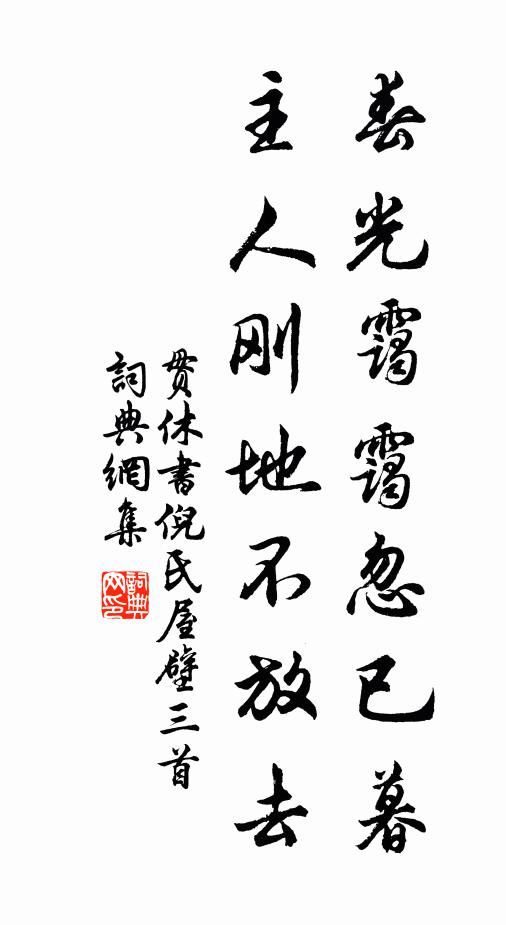 春光靄靄忽已暮
主人刚地不放去
贯休書倪氏屋壁三首
詞典網集
詞典网印